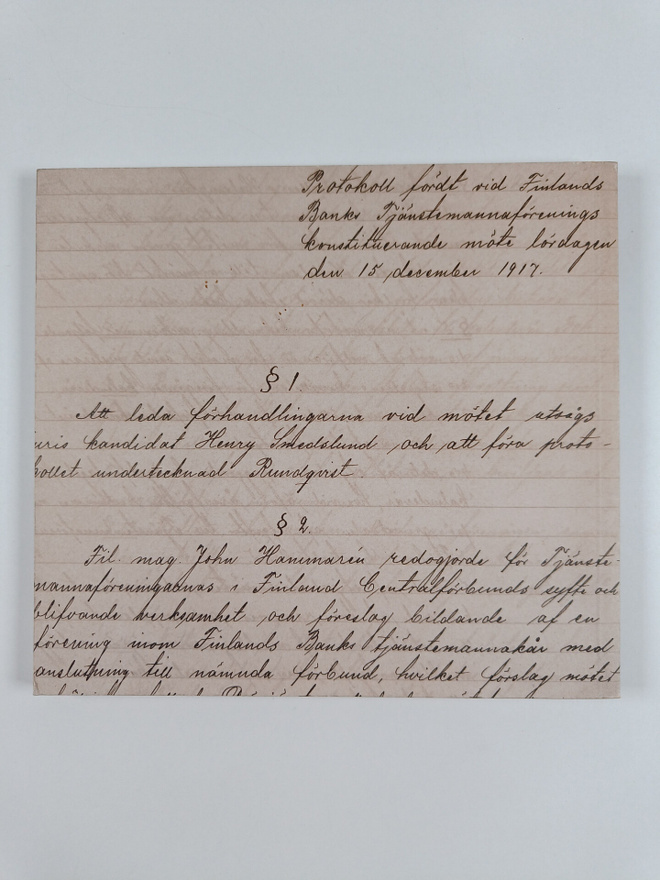 Protokoll fördt vid Finlands
Banks Tjänstemannaförenings
konstituerande möte lördagen
den 15 december 1917.
§ 1
Att leda förhandlingarna vid mötet utsågs
juris kandidat Henry Smedslund och att föra proto-
kollet undertecknad Rundqvist.
§ 2.
Fil. mag. John Hammarén redogjorde för Tjänste-
mannaföreningarnas i Finland Centralförbunds syfte och
blifvande verksamhet och föreslog bildande af en
förening inom Finlands Banks tjänstemannakår med
anslutning till nämnda förbund, hvilket förslag mötet